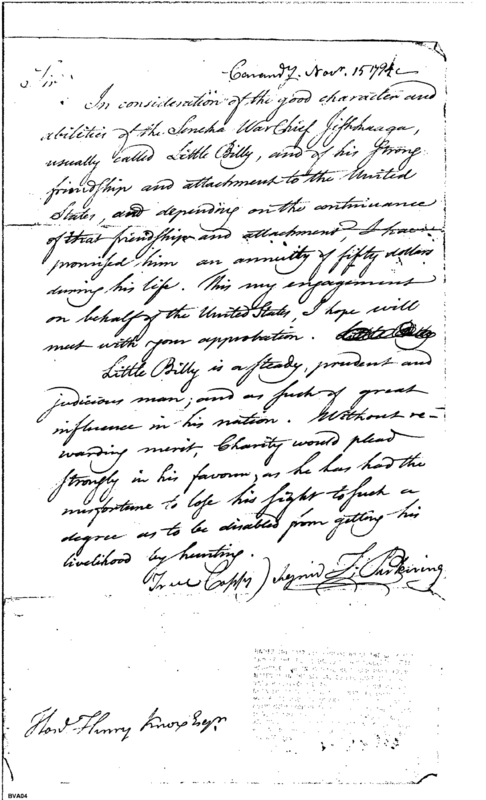 Canand'y. Novr. 15 1794
Sir
In consideration of the good character and
abilities of the Seneka War Chief Jishkaaga,
usually called Little Billy, and of his strong
friendship and attachment to the United
States, and depending on the continuance
of that friendship and attachment, I have
promised him an annuity of fifty dollars
during his life. This my engagement
on behalf of the United States, I hope will
meet with your approbation.
Little Billy is a steady, prudent and
judicious man; and as such of great
influence in his nation. Without re-
warding merit, Charity would plead
strongly in his favour; as he has had the
misfortune to lose his sight to such a
degree as to be disabled from getting his
livelihood by hunting.
True Copy) Signed T: Pickering
Hond. Henry Knox Esqr.
BVA04